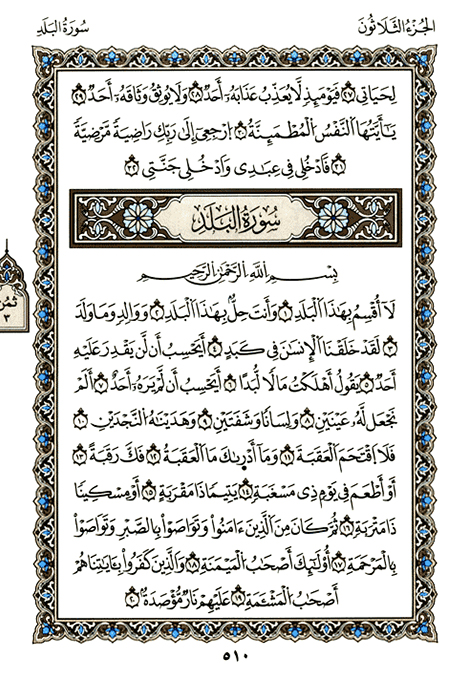 الجزء الثلاثون
سورة البلد
لِحَيَاتِي ٢٧ فَيَوْمَئِذٍ لَّا يُعَذِّبُ عَذَابَهُۥ أَحَدٌ ٢٨ وَلَا يُوثِقُ وَثَاقَهُۥ أَحَدٌ ٢٩
يَٰٓأَيَّتُهَا ٱلنَّفْسُ ٱلْمُطْمَئِنَّةُ ٣٠ ٱرْجِعِي إِلَىٰ رَبِّكِ رَاضِيَةً مَّرْضِيَّةً
٣١ فَٱدْخُلِي فِي عِبَٰدِي وَٱدْخُلِي جَنَّتِي ٣٢
سُورَةُ البَلَدِ
بِسْمِ ٱللَّهِ ٱلرَّحْمَٰنِ ٱلرَّحِيمِ
لَآ أُقْسِمُ بِهَٰذَا ٱلْبَلَدِ ١ وَأَنتَ حِلٌّۢ بِهَٰذَا ٱلْبَلَدِ ٢ وَوَالِدٍ وَمَا وَلَدَ
٣ لَقَدْ خَلَقْنَا ٱلْإِنسَٰنَ فِي كَبَدٍ ٤ أَيَحْسِبُ أَن لَّن يَقْدِرَ عَلَيْهِ
أَحَدٌ ٥ يَقُولُ أَهْلَكْتُ مَالًا لُّبَدًا ٦ أَيَحْسِبُ أَن لَّمْ يَرَهُۥٓ أَحَدٌ ٧ أَلَمْ
نَجْعَل لَّهُۥ عَيْنَيْنِ ٨ وَلِسَانًا وَشَفَتَيْنِ ٩ وَهَدَيْنَٰهُ ٱلنَّجْدَيْنِ ١٠
فَلَا ٱقْتَحَمَ ٱلْعَقَبَةَ ١١ وَمَآ أَدْرِىٰكَ مَا ٱلْعَقَبَةُ ١٢ فَكَّ رَقَبَةً ١٣
أَوْ أَطْعَمَ فِي يَوْمٍ ذِي مَسْغَبَةٍ ١٤ يَتِيمًا ذَا مَقْرَبَةٍ ١٥ أَوْ مِسْكِينًا
ذَا مَتْرَبَةٍ ١٦ ثُمَّ كَانَ مِنَ ٱلَّذِينَ ءَامَنُوا۟ وَتَوَاصَوْا۟ بِٱلصَّبْرِ وَتَوَاصَوْا۟
بِٱلْمَرْحَمَةِ ١٧ أُو۟لَٰٓئِكَ أَصْحَٰبُ ٱلْمَيْمَنَةِ ١٨ وَٱلَّذِينَ كَفَرُوا۟ بِـَٔايَٰتِنَا هُمْ
أَصْحَٰبُ ٱلْمَشْـَٔمَةِ ١٩ عَلَيْهِمْ نَارٌ مُّؤْصَدَةٌۢ ٢٠
ثمن
٣
٥١٠